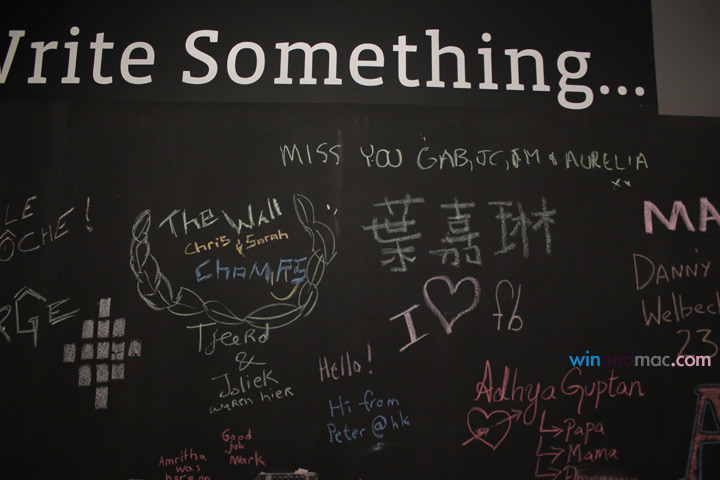 Write Something...
MISS YOU GAB, JC, TM & AURELIA
xx
LE
OCHE!
The Wall
Chris & Sarah
CHAMPS
葉嘉琳
MA
DANNY
Welbec
23
RGE
I ♡ fb
winandmac.com
Tjeerd
&
Joliek
waren hier
Hello!
Hi from
Peter @hk
Adhya Guptan
Papa
Mama
Good
job
Mark
Amritha
was
here on